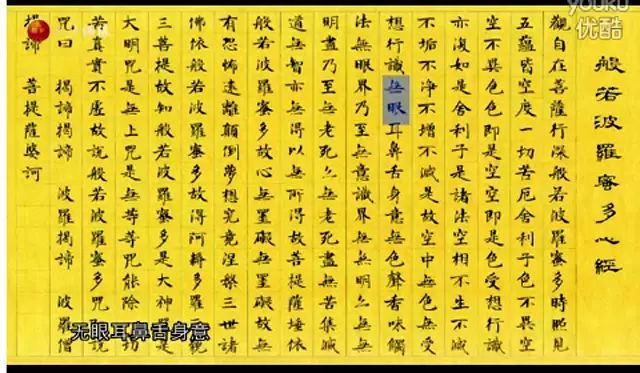 般若波羅蜜多心經
觀自在菩薩行深般若波羅蜜多時照見
五蘊皆空度一切苦厄舍利子色不異空
空不異色色即是空空即是色受想行識
亦復如是舍利子是諸法空相不生不滅
不垢不淨不增不減是故空中無色無受
想行識無眼耳鼻舌身意無色聲香味觸
法無眼界乃至無意識界無無明亦無無
明盡乃至無老死亦無老死盡無苦集滅
道無智亦無得以無所得故菩提薩埵依
般若波羅蜜多故心無罣礙無罣礙故無
有恐怖遠離顛倒夢想究竟涅槃三世諸
佛依般若波羅蜜多故得阿耨多羅藐
三菩提故知般若波羅蜜多是大神咒是
大明咒是無上咒是無等等咒能除切
苦真實不虛故說般若波羅蜜多咒說
咒曰 揭諦揭諦 波羅揭諦 波羅僧
揭諦 菩提薩婆訶
无眼耳鼻舌身意
YOUKU
优酷